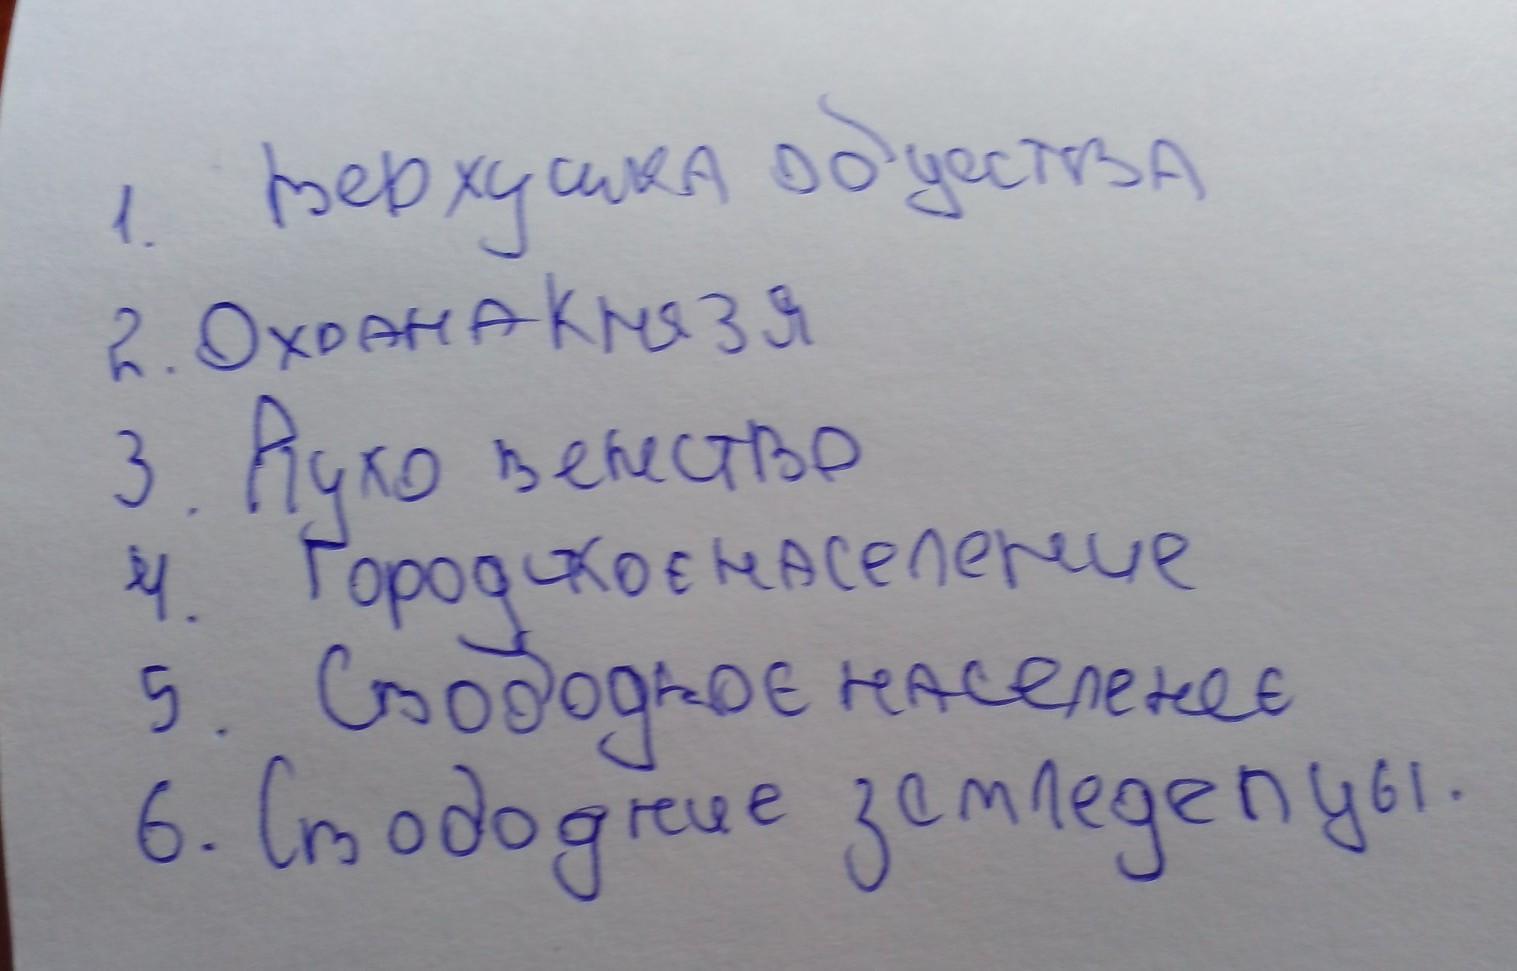 1. Верхушка общества
2. Охрана Князя
3. Духовенство
4. Городское население
5. Свободное населенее
6. Свободние земледелцы.